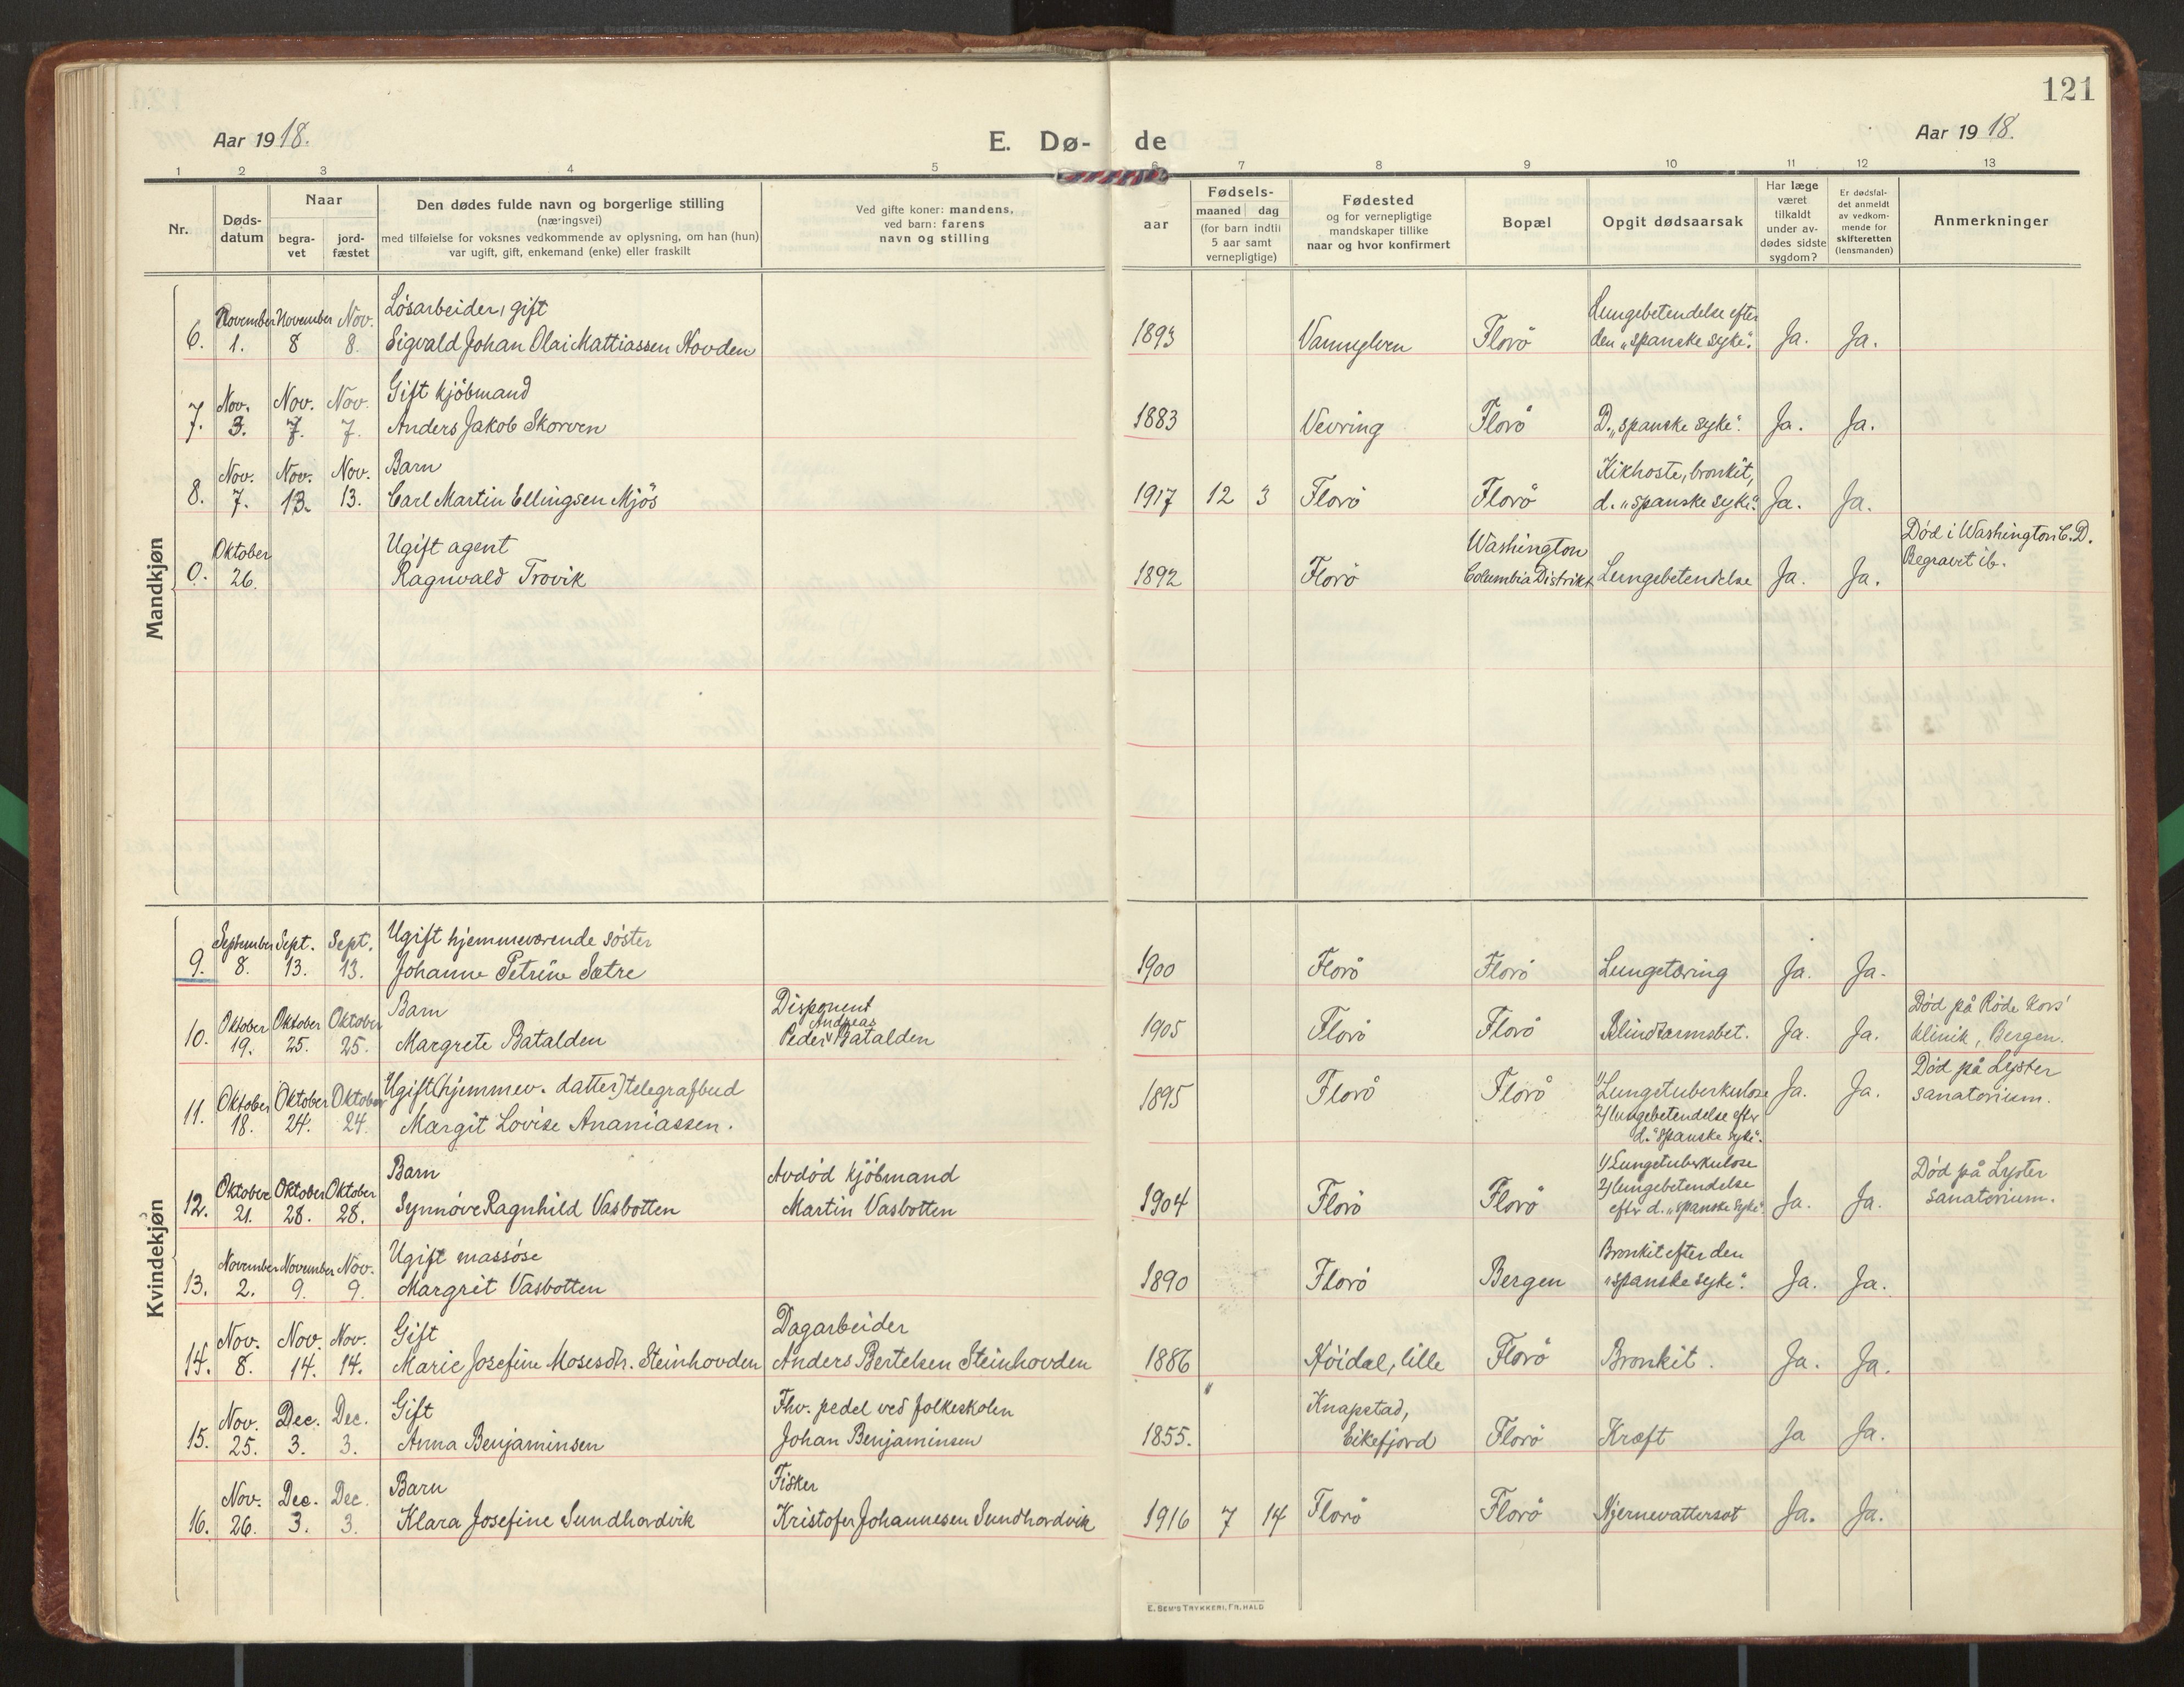 121
Aar 1918.
E. Dø- de
Aar 1918.
1 2 3 4 5 6 7 8 9 10 11 12 13
Nr.
Døds-
datum
Naar
begra-
vet
jord-
fæstet
Den dødes fulde navn og borgerlige stilling
(næringsvei)
med tilføielse for voksnes vedkommende av oplysning, om han (hun)
var ugift, gift, enkemand (enke) eller fraskilt
Ved gifte koner: mandens,
ved barn: farens
navn og stilling
aar
Fødsels-
maaned dag
(for barn indtil
5 aar samt
vernepligtige)
Fødested
og for vernepligtige
mandskaper tillike
naar og hvor konfirmert
Bopæl
Opgit dødsaarsak
Har læge
været
tilkaldt
under av-
dødes sidste
sygdom?
Er dødsfal-
det anmeldt
av vedkom-
mende for
skifteretten
(lensmanden)
Anmerkninger
Mandkjøn
November November Nov. Løsarbeider, gift Lungebetendelse efter
6. 1. 8 8. Sigvald Johan Olai Mattiassen Hovden 1893 Vannylven Florö den "spanske syke". Ja. Ja.
Nov. Nov. Nov. Gift kjöbmand
7. 3. 7. 7. Anders Jakob Skorven 1883 Vevring Florö D. "spanske syke". Ja. Ja.
Nov. Nov. Nov. Barn Kikhoste, bronkit,
8. 7. 13. 13. Carl Martin Ellingsen Mjös 1917 12 3 Florö Florö d. "spanske syke". Ja. Ja.
Oktober Ugift agent Washington Død i Washington C.D.
0. 26. Ragnvald Trovik 1892 Florö Columbia Distrikt Lungebetendelse Ja. Ja. Begravet ib.
Kvindekjøn
September Sept. Sept. Ugift hjemmeværende söster
9. 8. 13. 13. Johanne Petrine Sætre 1900 Florö Florö Lungetæring Ja. Ja.
Oktober Oktober Oktober Barn Disponent Död på Röde Kors'
10. 19. 25. 25. Margrete Batalden Peder Andreas Batalden 1905 Florö Florö Blindtarmsbet. Ja. Ja. klinik, Bergen.
Oktober Oktober Oktober Ugift (hjemmev. datter) telegrafbud 1/ Lungetuberkulose Död på Lyster
11. 18. 24. 24. Margit Lovise Ananiassen. 1895 Florö Florö 2/ lungebetendelse efter Ja. Ja. sanatorium.
d. "spanske syke".
Oktober Oktober Oktober Barn Avdöd kjöbmand 1/ Lungetuberkulose Död på Lyster
12. 21. 28. 28. Synnöve Ragnhild Vasbotten Martin Vasbotten 1904 Florö Florö 2/ lungebetendelse Ja. Ja. sanatorium.
efter d. "spanske syke".
November November Nov. Ugift massöse Bronkit efter den
13. 2. 9. 9. Margrét Vasbotten 1890 Florö Bergen "spanske syke". Ja. Ja.
Nov. Nov. Nov. Gift Dagarbeider
14. 8. 14. 14. Marie Josefine Mosesdtr. Steinhovden Anders Bertelsen Steinhovden 1886 Höidal, lille Florö Bronkit. Ja. Ja.
Nov. Dec. Dec. Gift Fhv. pedel ved folkeskolen Knapstad,
15. 25. 3. 3. Anna Benjaminsen Johan Benjaminsen 1855. Eikefjord Florö Kræft Ja Ja.
Nov. Dec. Dec. Barn Fisker
16. 26. 3. 3. Klara Josefine Sundhordvik Kristofer Johannesen Sundhordvik 1916 7 14 Florö Florö Hjernevattersot Ja. Ja.
E. SEM'S TRYKKERI, FR. HALD